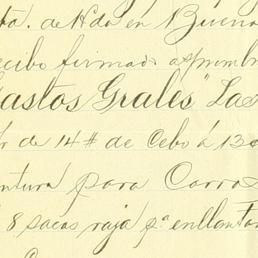 ta. de Hda en Buena
ecibo firmado
Gastos Grales" Las
de 14# de Cebo á 13
ntura para Carros
8 sacas raja pª enllantar